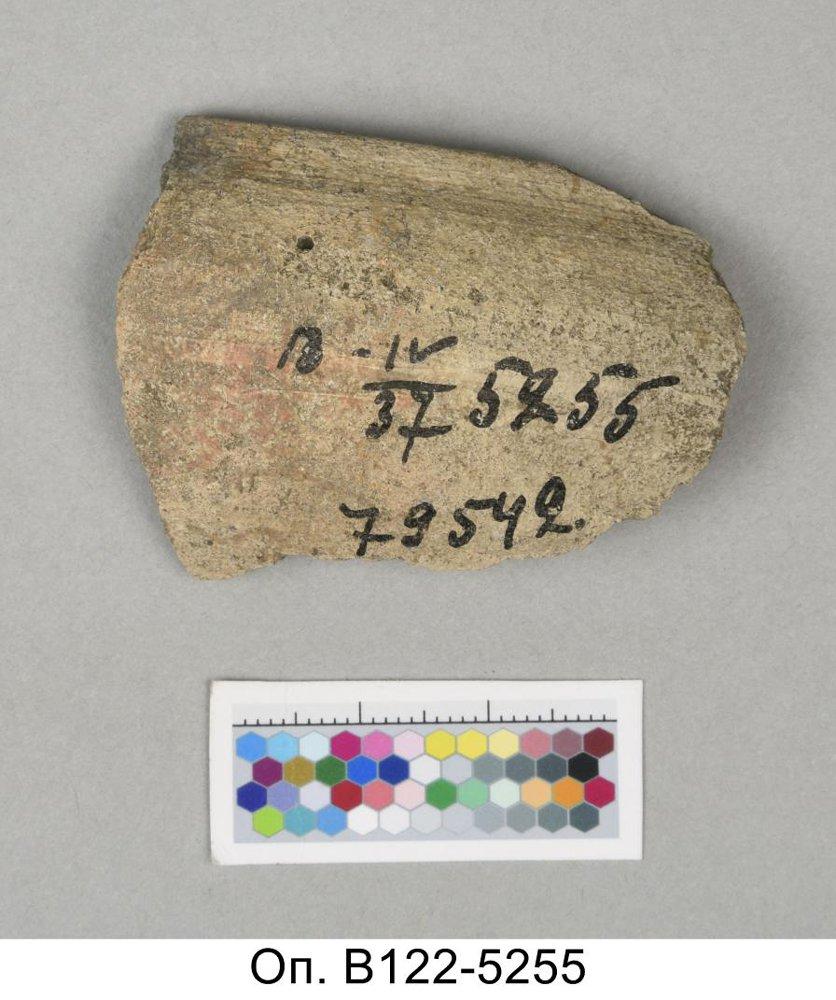 В-IV
37 5255
79542.
Оп. В122-5255